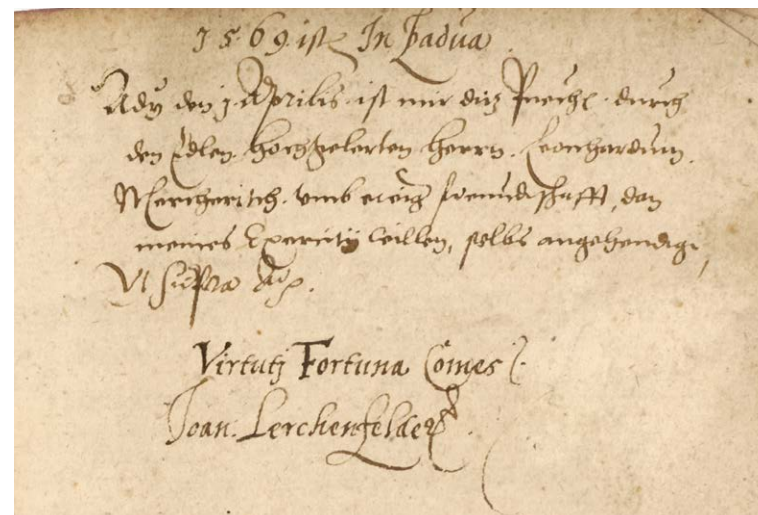 1569 ist In Padua.
Ady den j. Aprilis ist mir diz Puech durch
den Edlen hochgelerten Herrn. Leonhardum.
Mercheritsch. vmb ewig freundtschafft, dan
meines Exercitij willen, selbs angehendigt,
Vt supra
Virtutj Fortuna Comes
Joan. Lerchenfelder